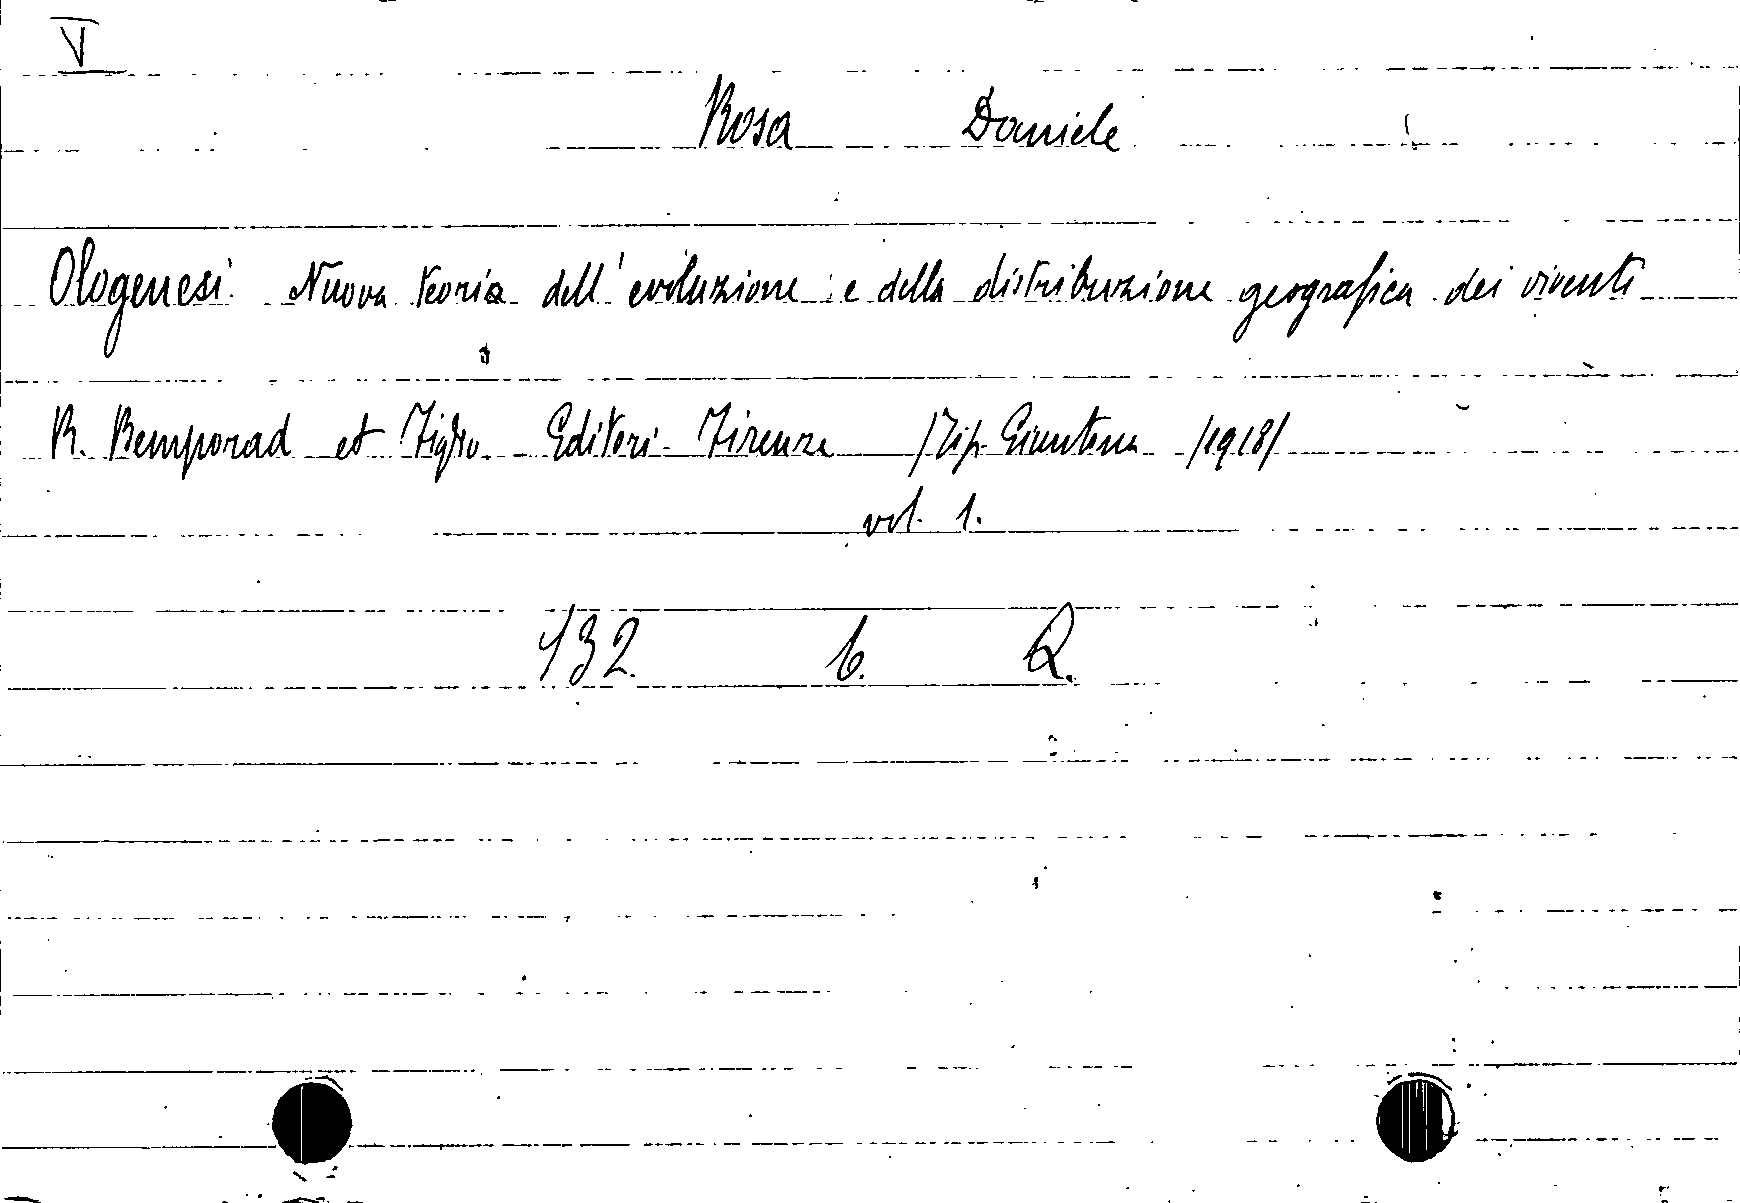 V
Rosa Daniele
Ologenesi. Nuova teoria dell'evoluzione e della distribuzione geografica dei viventi
R. Bemporad et Figlio. Editori - Firenze /Tip. Giuntina /1918/
vol. 1.
132. 6. R.